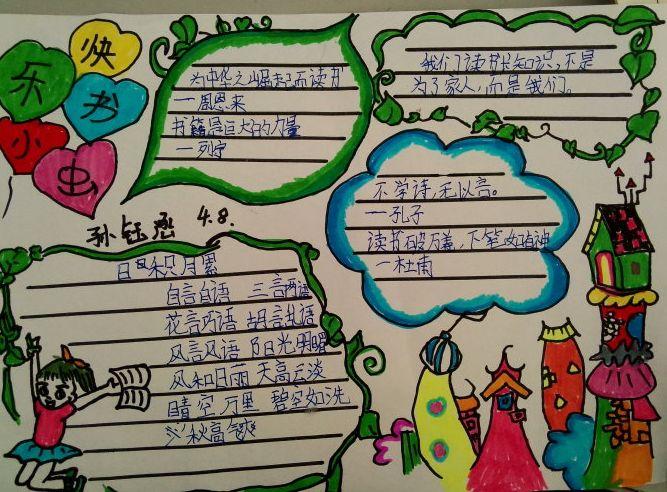 快乐书小虫
为中华之崛起而读书
一周恩来
书籍是巨大的力量
一列宁
我们读书长知识,不是
为了家人,而是我们。
不学诗,无以言。
一孔子
读书破万卷,下笔如有神
一杜甫
4.8.
日积月累
自言自语 三言两语
花言巧语 胡言乱语
风言风语 阳光明媚
风和日丽 天高云淡
晴空万里 碧空如洗
秋高气爽